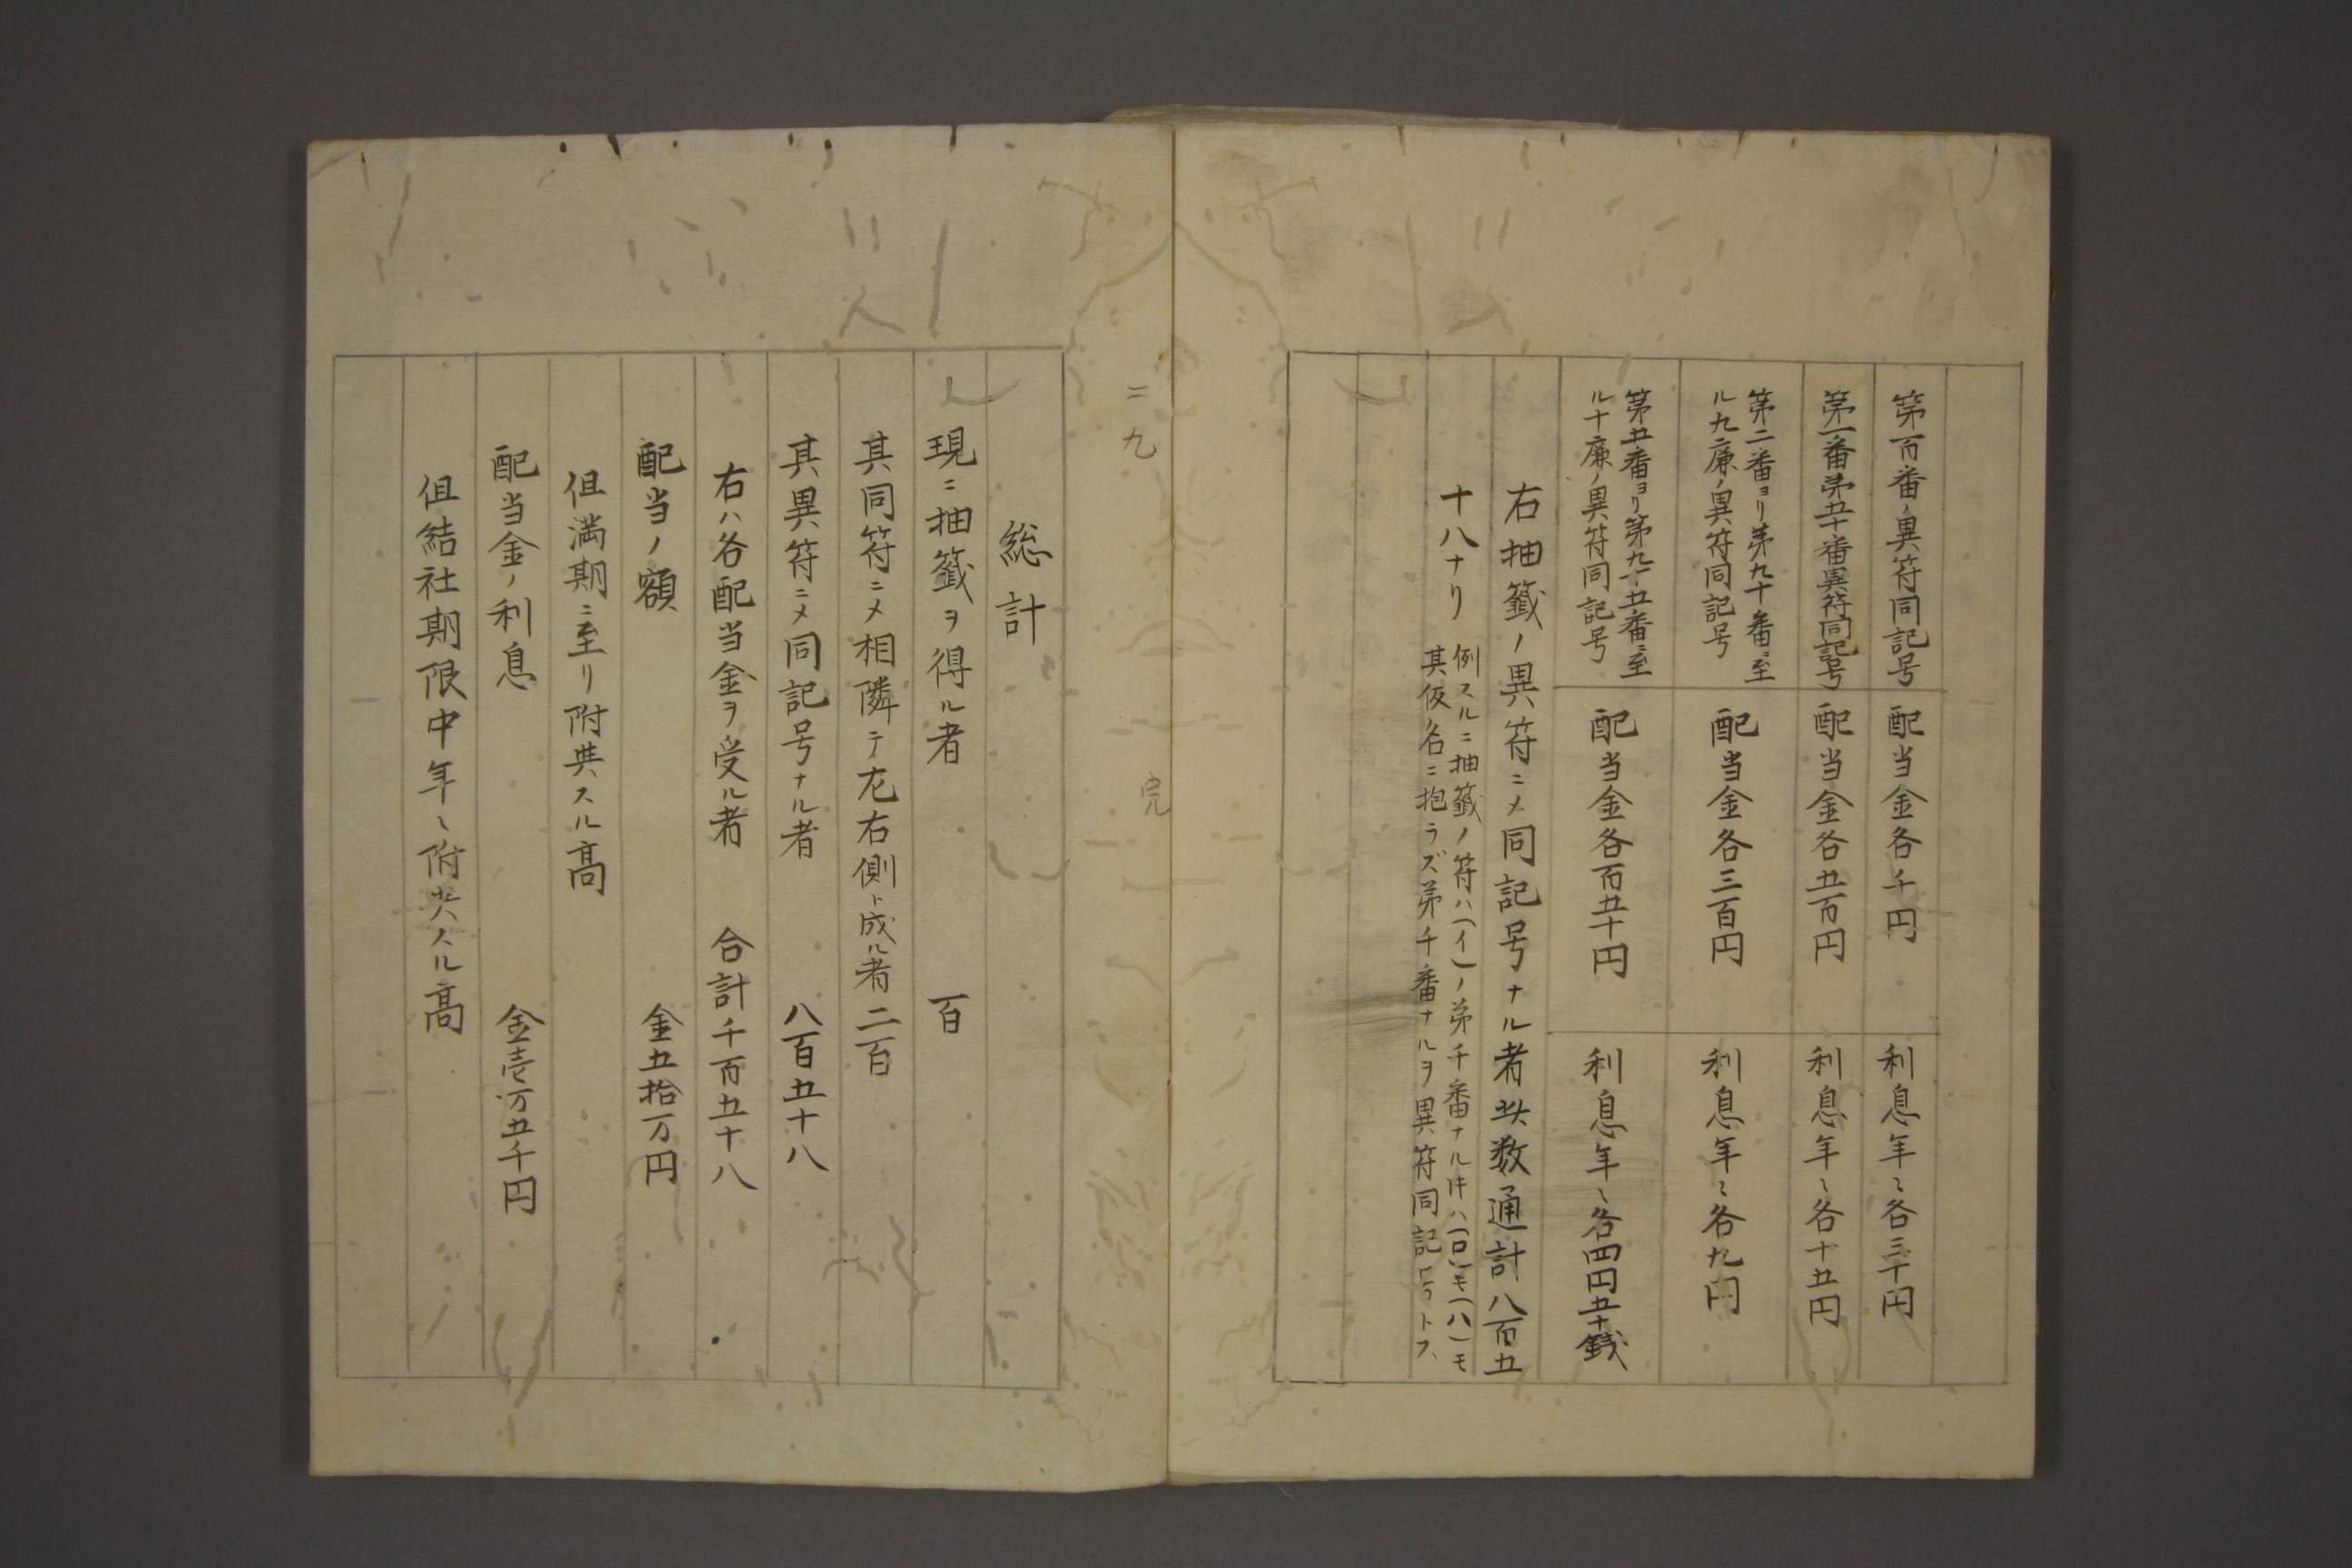 第一百番ノ異符同記号　配当金各千円　利息年〻各三十円
第一番第五十番異符同記号　配当金各五百円　利息年〻各十五円
第二番ヨリ第九十番ニ至
ル九廉ノ異符同記号　配当金各三百円　利息年〻各九円
第五番ヨリ第九十五番ニ至
ル十廉ノ異符同記号　配当金各百五十円　利息年〻各四円五十銭
右抽籤ノ異符ニメ同記号ナル者共数通計八百五
十八ナリ
例スルニ抽籤ノ符ハ(イ)ノ第千番ナル𪜈ハ(ロ)モ(ハ)モ
其仮名ニ抱ラズ第千番ナルヲ異符同記号トス
二九
完
総計
現ニ抽籤ヲ得ル者　百
其同符ニメ相隣テ左右側ト成ル者　二百
其異符ニメ同記号ナル者　八百五十八
右ハ各配当金ヲ受ル者　合計千百五十八
配当ノ額　金五拾万円
但満期ニ至リ附与スル高
配当金ノ利息　金壱万五千円
但結社期限中年〻附与スル高